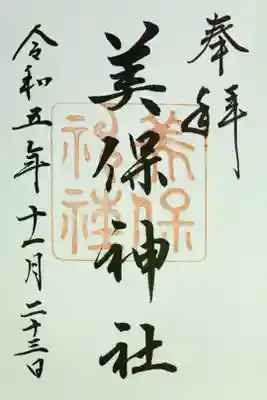 奉拝
美保神社
美保
神社
令和五年十一月二十三日